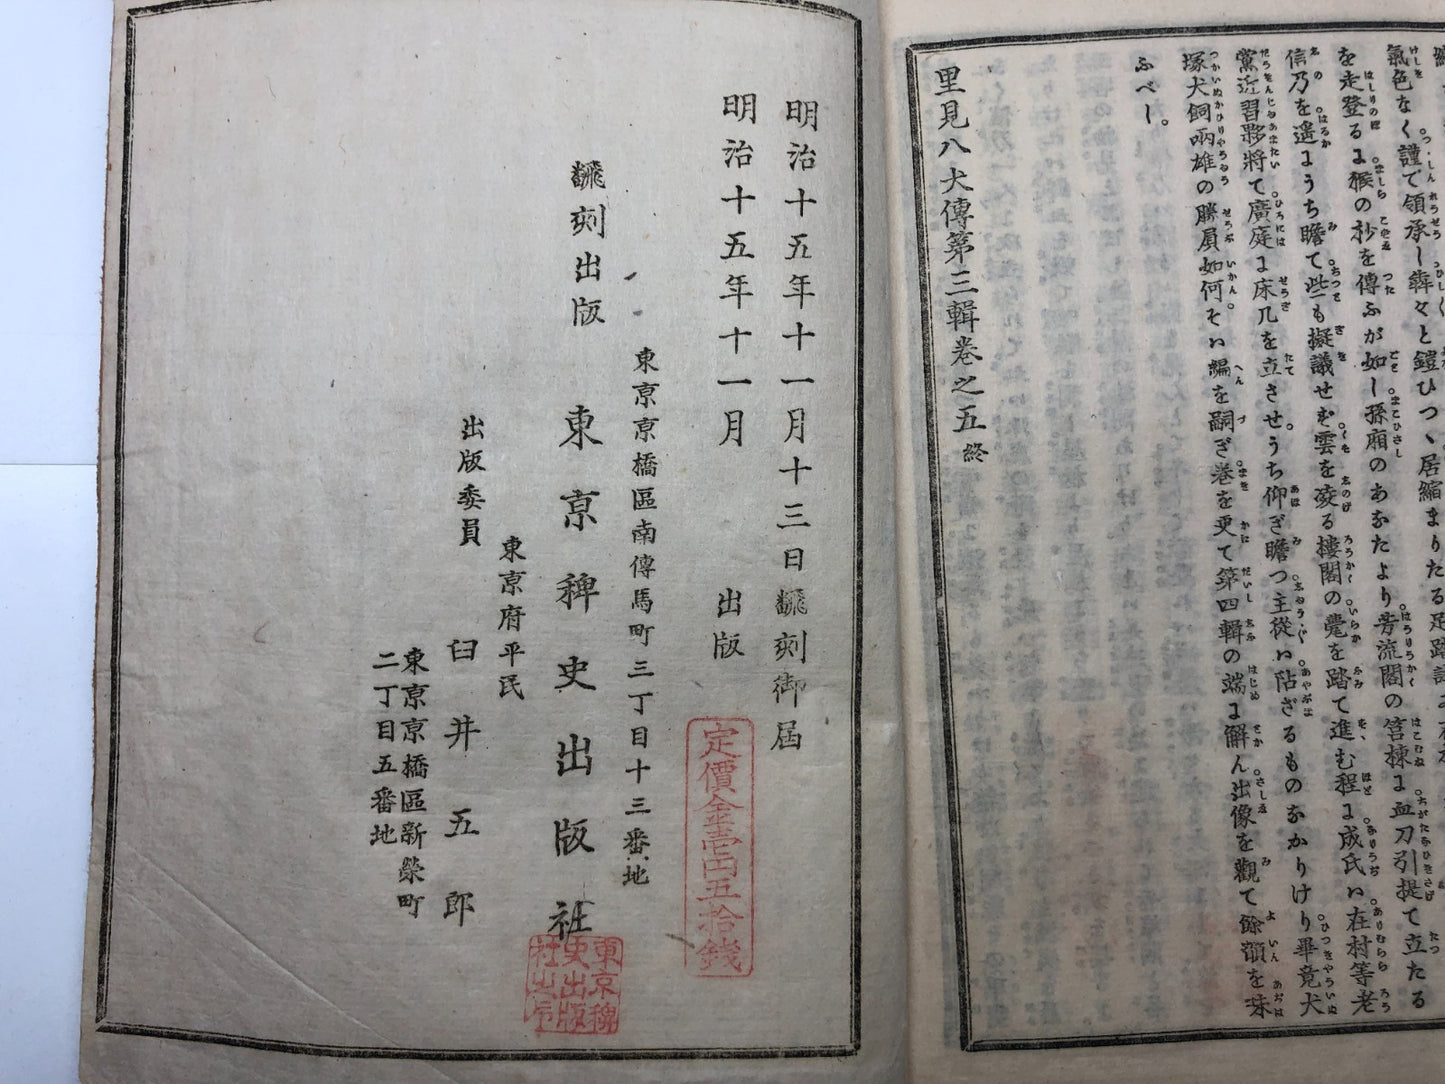 氣色なく謹で領承し犇々と鎧ひつゝ居縮まりたる足踏
を走登るに猴の杪を傳ふが如し孫廂のあなたより芳流閣の筥棟に血刀引提て立たる
信乃を遥にうち瞻て些も擬議せず雲を凌る樓閣の甍を踏て進む程に成氏は在村等老
黨近習夥將て廣庭に床几を立させうち仰ぎ瞻つ主從は阽ざるものなかりけり畢竟犬
塚犬飼兩雄の勝負如何そは編を嗣ぎ巻を更て第四輯の端に解ん出像を觀て餘韻を味
ふべし。
里見八犬傳第三輯巻之五終
明治十五年十一月十三日飜刻御屆
明治十五年十一月 出版
定價金壱円五拾錢
東京京橋區南傳馬町三丁目十三番地
飜刻出版 東京稗史出版社
東京稗史出版社之印
東京府平民
出版委員 臼井五郎
東京京橋區新榮町
二丁目五番地